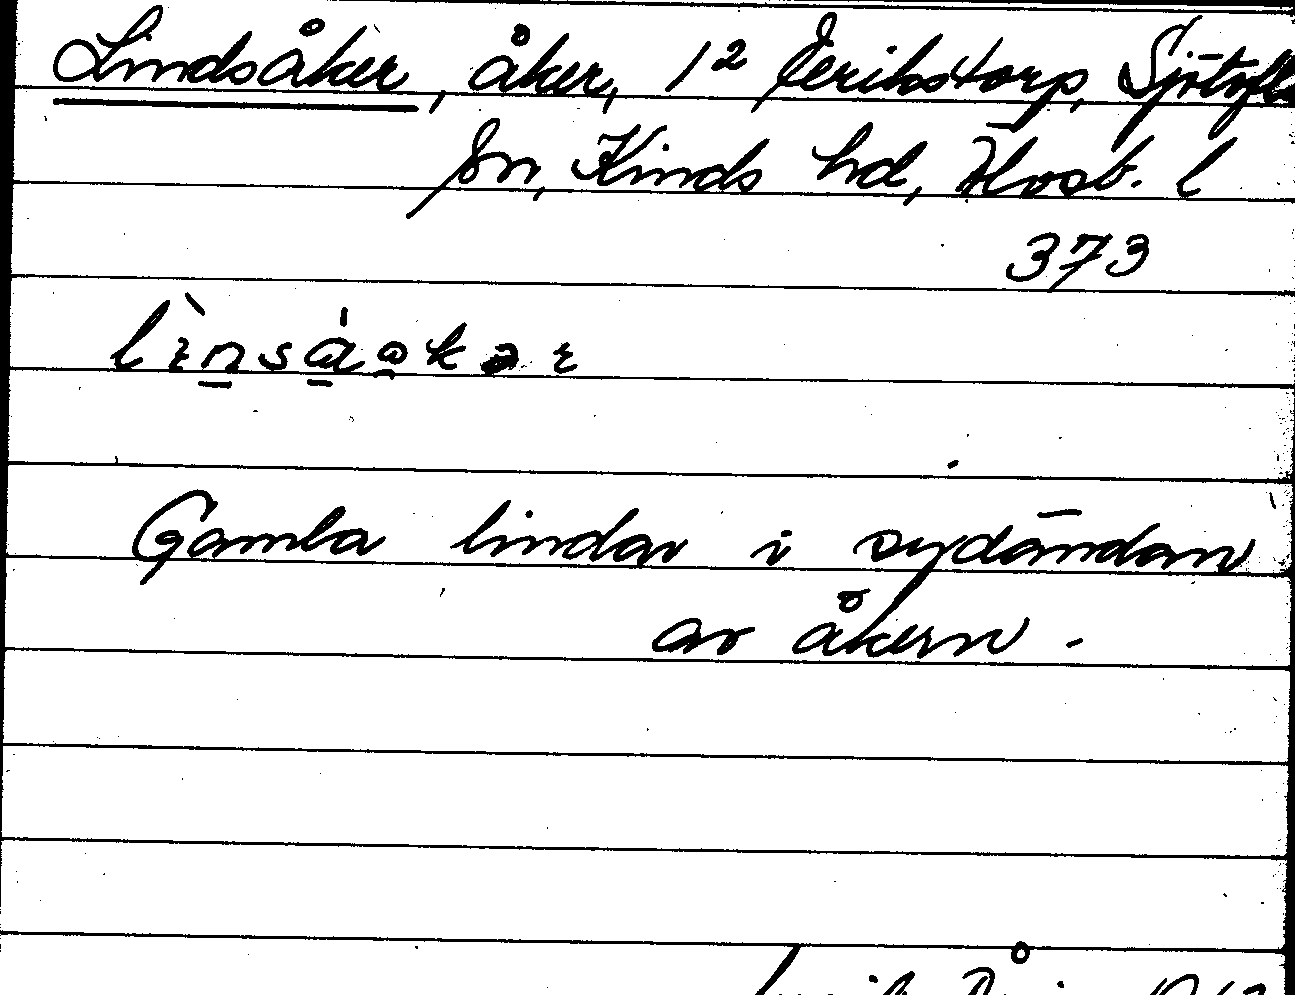 Lindsåker, åker, 1² Jerikstorp, Sjötofta
sn, Kinds hd, Älvsb. l
373
Gamla lindar i sydändan
av åkern.